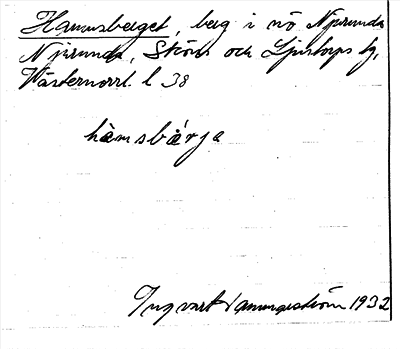 Hamnsberget, berg i nö Njurunda
Njurunda, Sköns och Ljustorps tg,
Västernorrl. l 38
hàmsbárje
Ingvart 1932